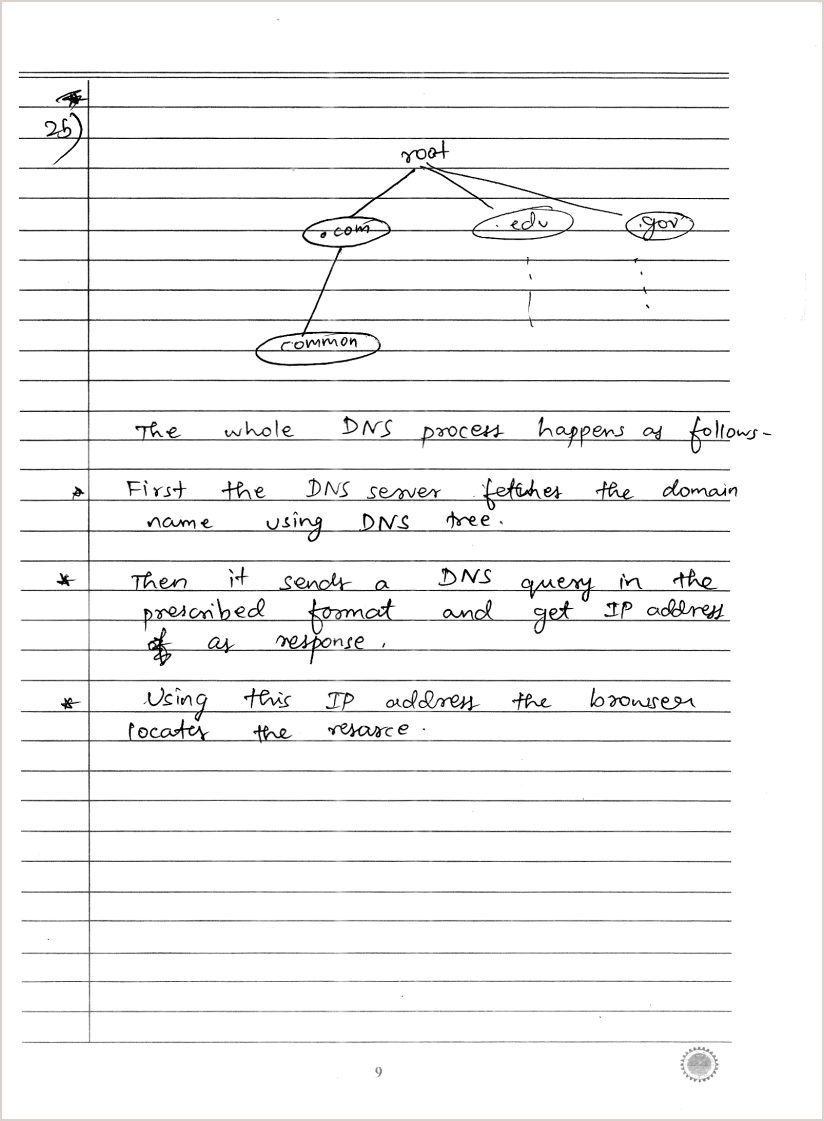 25)
root
.com .edu .gov
common
The whole DNS process happens as follows-
* First the DNS server fetches the domain
name using DNS tree.
* Then it sends a DNS query in the
prescribed format and get IP address
as response.
* Using this IP address the browser
locates the resarce.
9